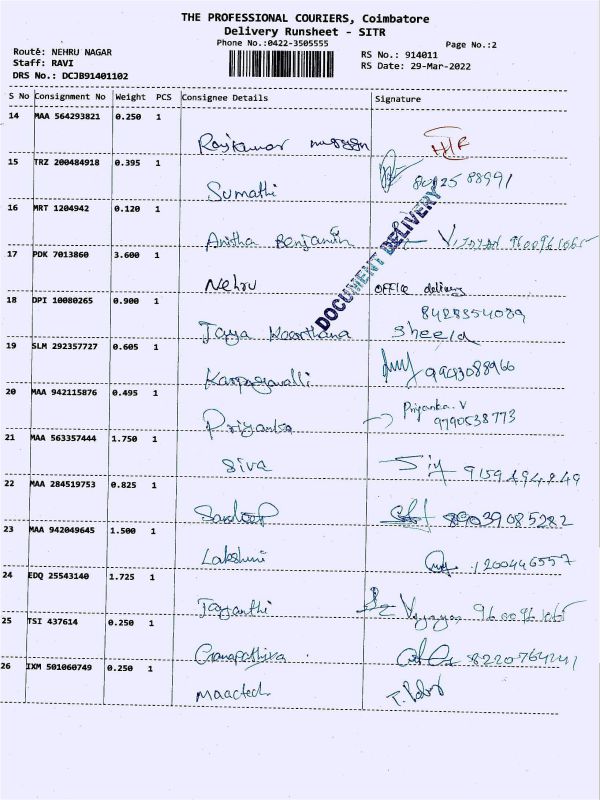 THE PROFESSIONAL COURIERS, Coimbatore
Delivery Runsheet - SITR
Phone No.:0422-3505555
Page No.:2
Route: NEHRU NAGAR
RS No.: 914011
Staff: RAVI
RS Date: 29-Mar-2022
DRS No.: DCJB91401102
S No Consignment No Weight PCS Consignee Details Signature
14 MAA 564293821 0.250 1
Rajkumar
15 TRZ 200484918 0.395 1
Sumathi
16 MRT 1204942 0.120 1
Anitha Benjamin
17 PDK 7013860 3.600 1
Nehru OFFICE delivery
DOCUMENT DELIVERY
18 DPI 10080265 0.900 1 8428354089
Sheela
19 SLM 292357727 0.605 1
Karpagavalli
20 MAA 942115876 0.495 1 Priyanka.V
Priyanka 9790538773
21 MAA 563357444 1.750 1
Siva
22 MAA 284519753 0.825 1
Sandeep 89039085282
23 MAA 942049645 1.500 1
Lakshmi 1200446557
24 EDQ 25543140 1.725 1
Jayanthi
25 TSI 437614 0.250 1
26 IXM 501060749 0.250 1
Maactech